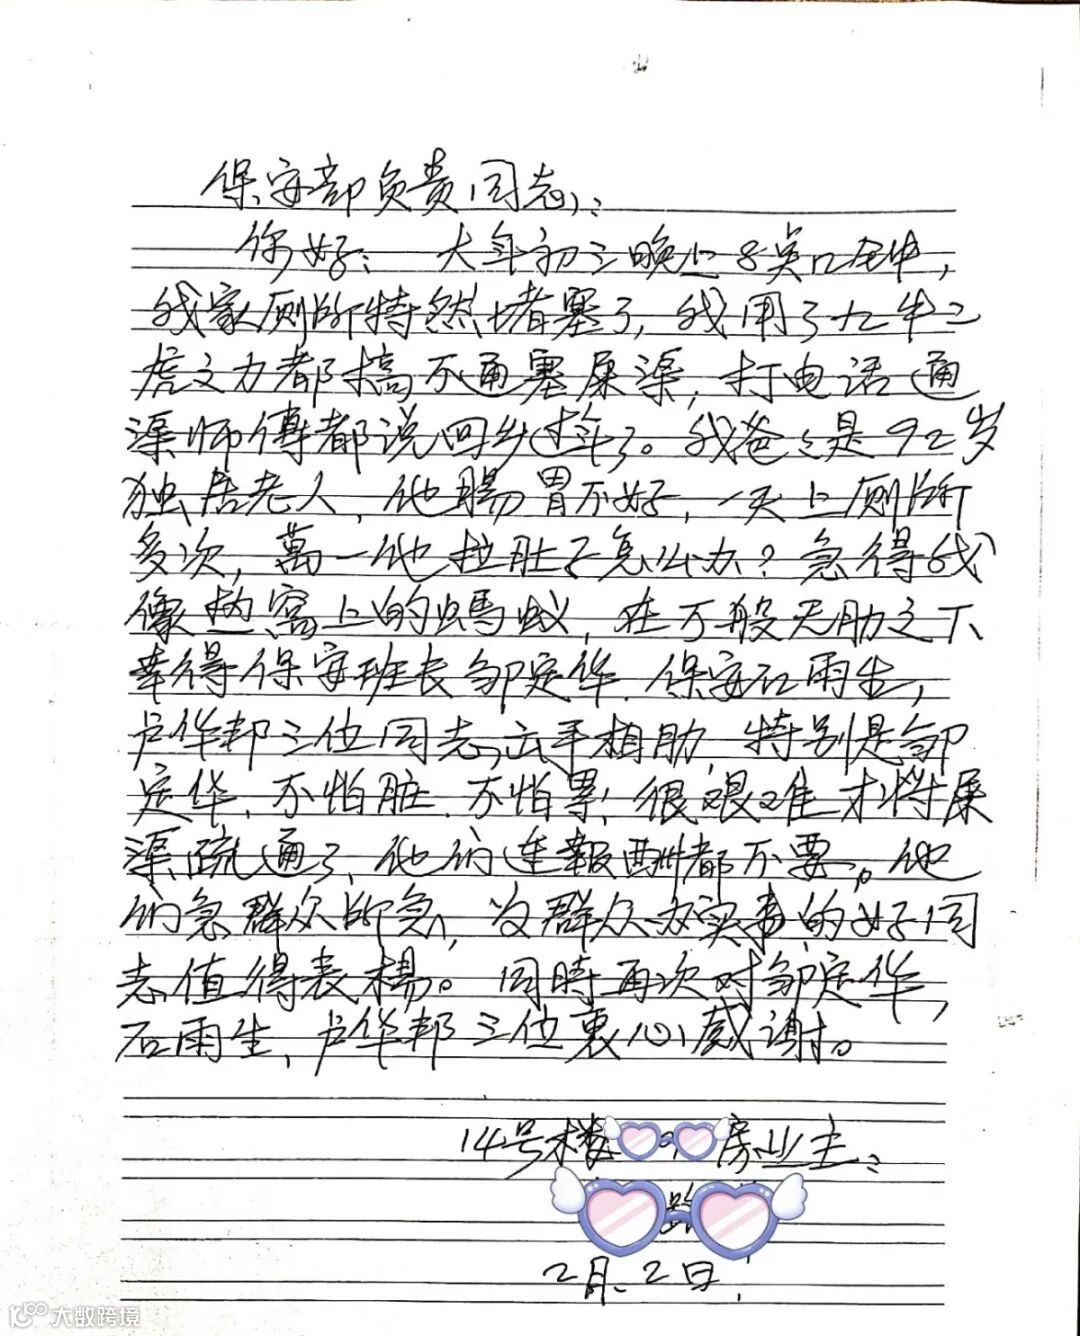 保安部负责同志：
你好：大年初三晚上8点口左中，
我家厕所特然堵塞了，我用了九牛二
虎之力都搞不通塞屎渠，打电话通
渠师傅都说回乡过年了。我爸爸是92岁
独居老人，他腸胃不好，一天上厕所
多次，萬一他拉肚子怎么办？急得我
像热窩上的螞蚁，在万般无助之下
幸得保安班长邹定华.保安石雨生，
卢华邦三位同志出手相助，特别是邹
定华，不怕脏.不怕累，很艰难才将屎
渠疏通了，他们连報酬都不要。他
们急群众所急，为群众办实事的好同
志值得表楊。同時再次对邹定华，
石雨生，卢华邦三位衷心感谢。
14号楼房业主：
2月.2日
大数跨境